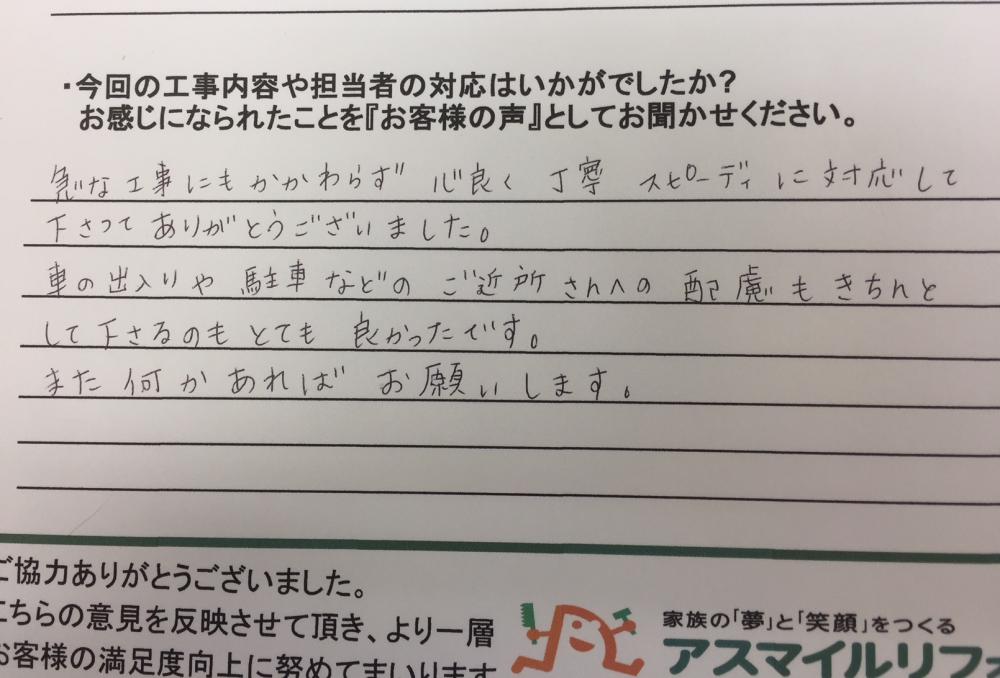 ・今回の工事内容や担当者の対応はいかがでしたか?
お感じになられたことを『お客様の声』としてお聞かせください。
急な工事にもかかわらず 心良く 丁寧 スピーディに対応して
下さって ありがとうございました。
車の出入りや 駐車などの ご近所さんへの 配慮もきちんと
して下さるのもとても 良かったです。
また何かあれば お願いします。
ご協力ありがとうございました。
こちらの意見を反映させて頂き、より一層
お客様の満足度向上に努めてまいります
家族の「夢」と「笑顔」をつくる
アスマイルリフォ